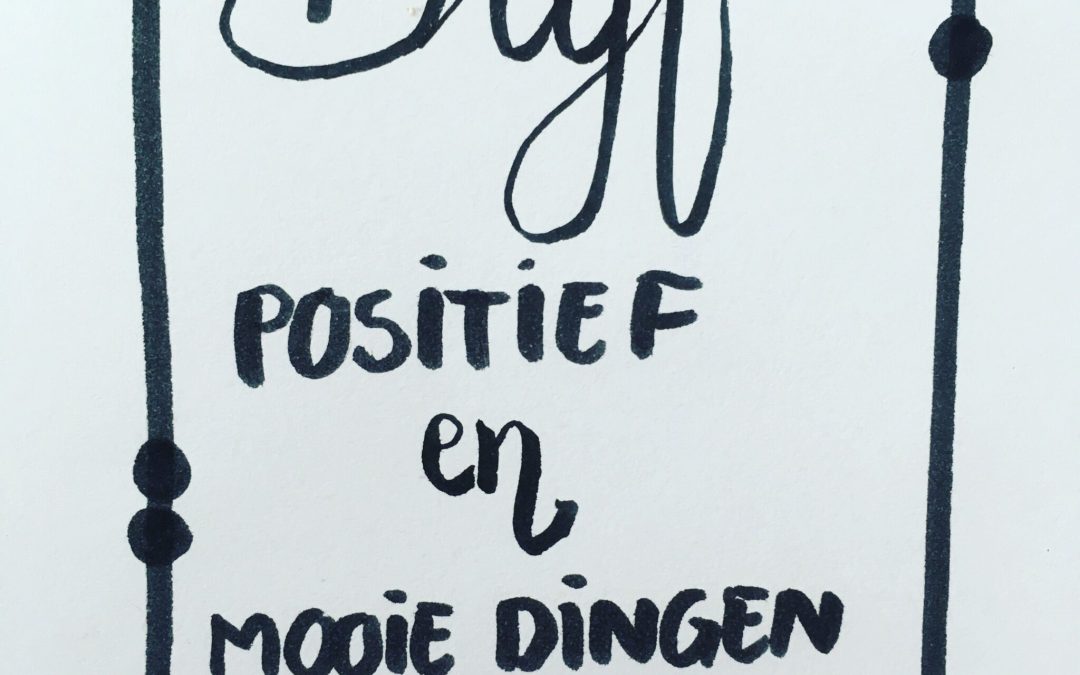 Blijf
POSiTiEF
en
MOOiE DiNGEN